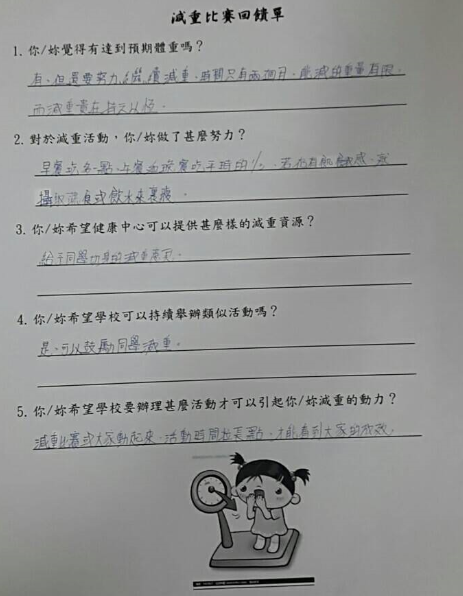 減重比賽回饋單
1. 你/妳覺得有達到預期體重嗎？
有、但還要努力繼續減重、時期只有兩個月、能減的重量有限、
而減重貴在持之以恆。
2. 對於減重活動，你/妳做了甚麼努力？
早餐吃多一點、午餐和晚餐吃平時的½、若仍有飢餓感、就
攝取流食或飲水來裹腹。
3. 你/妳希望健康中心可以提供甚麼樣的減重資源？
給予同學切身的減重
4. 你/妳希望學校可以持續舉辦類似活動嗎？
是、可以鼓勵同學減重。
5. 你/妳希望學校要辦理甚麼活動才可以引起你/妳減重的動力？
減重比賽或大家動起來、活動時間拉長點、才能看到大家的成效。